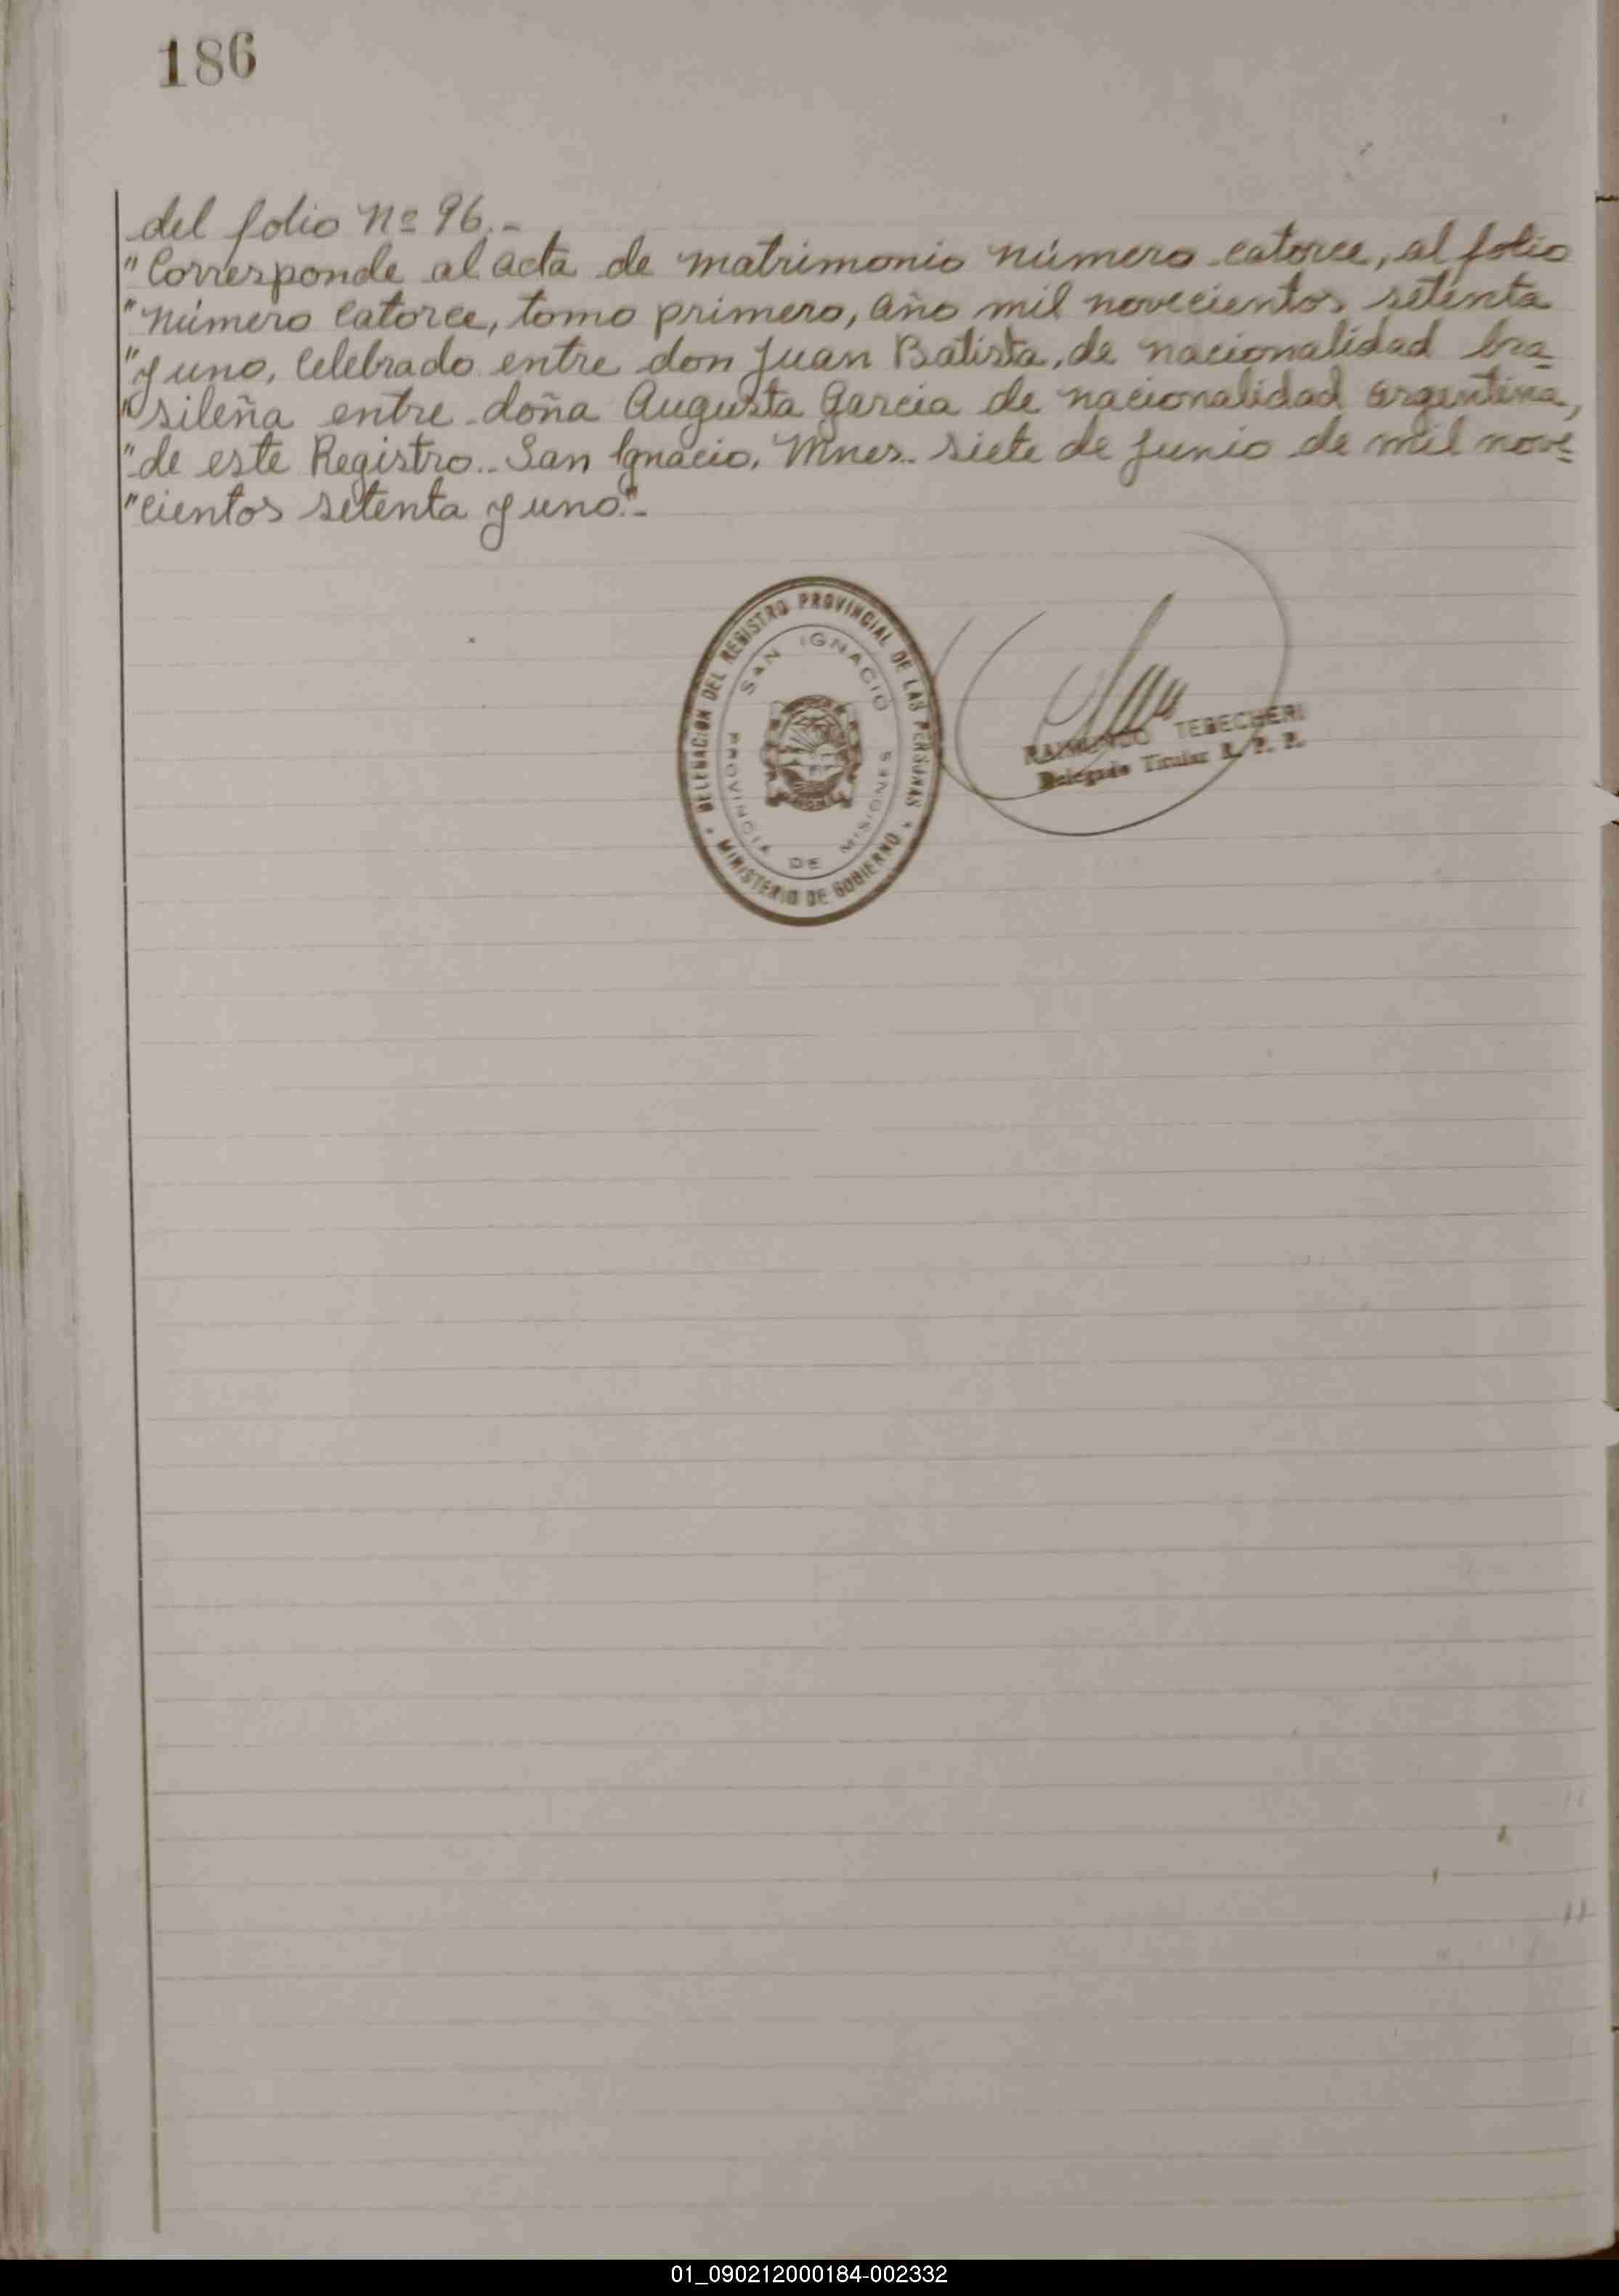 186
del folio Nº 96.-
"Corresponde al acta de matrimonio número catorce, al folio
"número catorce, tomo primero, año mil novecientos setenta
"y uno, celebrado entre don Juan Batista, de nacionalidad bra-
"sileña entre doña Augusta Garcia de nacionalidad argentina,
"de este Registro.. San Ignacio, Mnes. siete de junio de mil nove-
"cientos setenta y uno".-
DELEGACION DEL REGISTRO PROVINCIAL DE LAS PERSONAS
SAN IGNACIO
PROVINCIA DE MISIONES
MINISTERIO DE GOBIERNO
RAIMUNDO TEBECHERI
Delegado Titular R. P. P.
01_090212000184-002332